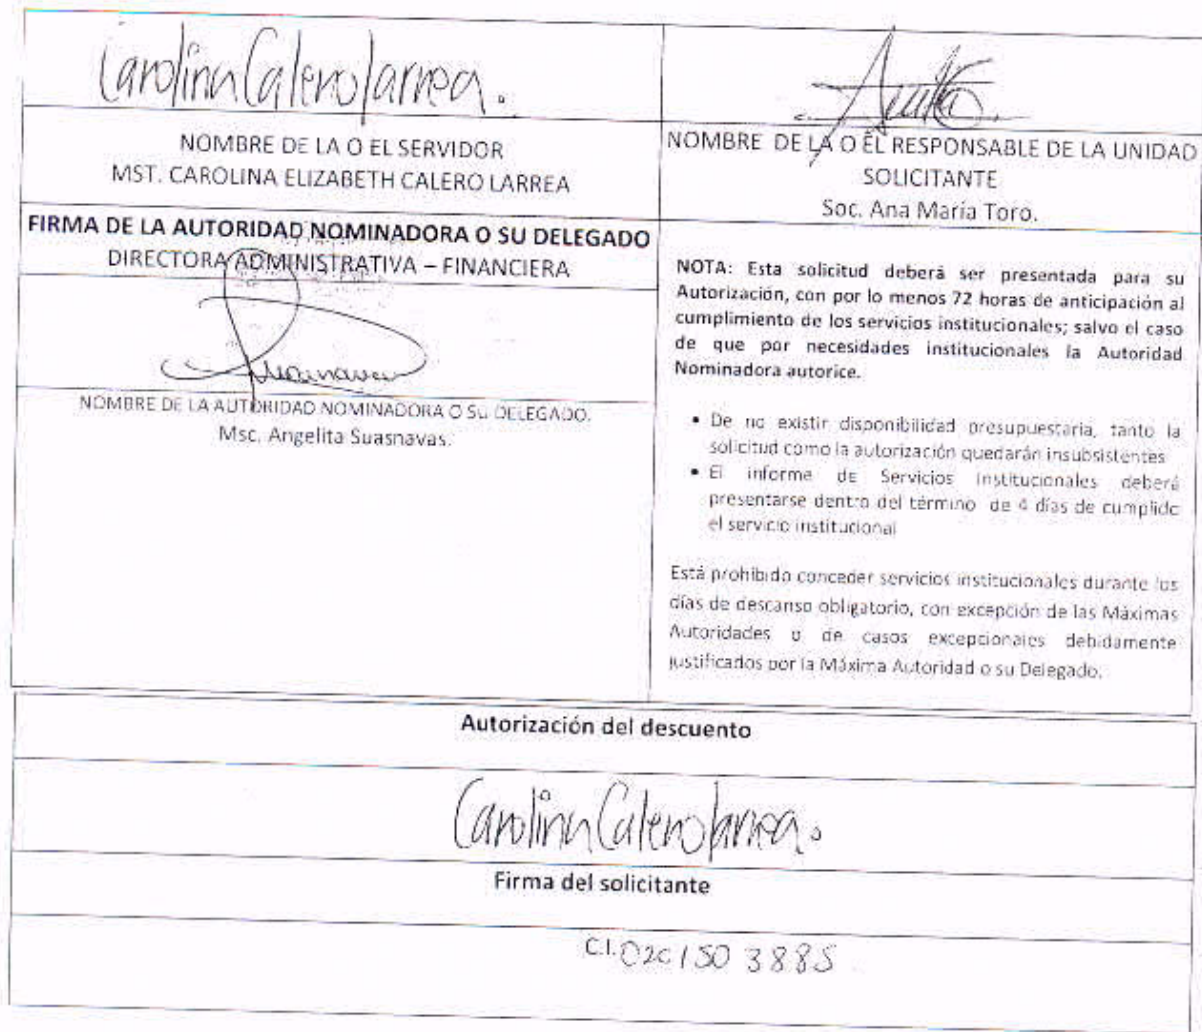 Carolina Calero Larrea.
NOMBRE DE LA O EL SERVIDOR
MST. CAROLINA ELIZABETH CALERO LARREA
NOMBRE DE LA O EL RESPONSABLE DE LA UNIDAD
SOLICITANTE
Soc. Ana María Toro.
FIRMA DE LA AUTORIDAD NOMINADORA O SU DELEGADO
DIRECTORA ADMINISTRATIVA – FINANCIERA
NOMBRE DE LA AUTORIDAD NOMINADORA O SU DELEGADO.
Msc. Angelita Suasnavas.
NOTA: Esta solicitud deberá ser presentada para su
Autorización, con por lo menos 72 horas de anticipación al
cumplimiento de los servicios institucionales; salvo el caso
de que por necesidades institucionales la Autoridad
Nominadora autorice.
• De no existir disponibilidad presupuestaria, tanto la
solicitud como la autorización quedarán insubsistentes
• El informe de Servicios Institucionales deberá
presentarse dentro del término de 4 días de cumplido
el servicio institucional
Está prohibido conceder servicios institucionales durante los
días de descanso obligatorio, con excepción de las Máximas
Autoridades o de casos excepcionales debidamente
justificados por la Máxima Autoridad o su Delegado.
Autorización del descuento
Carolina Calero Larrea.
Firma del solicitante
C.I. 0201503885